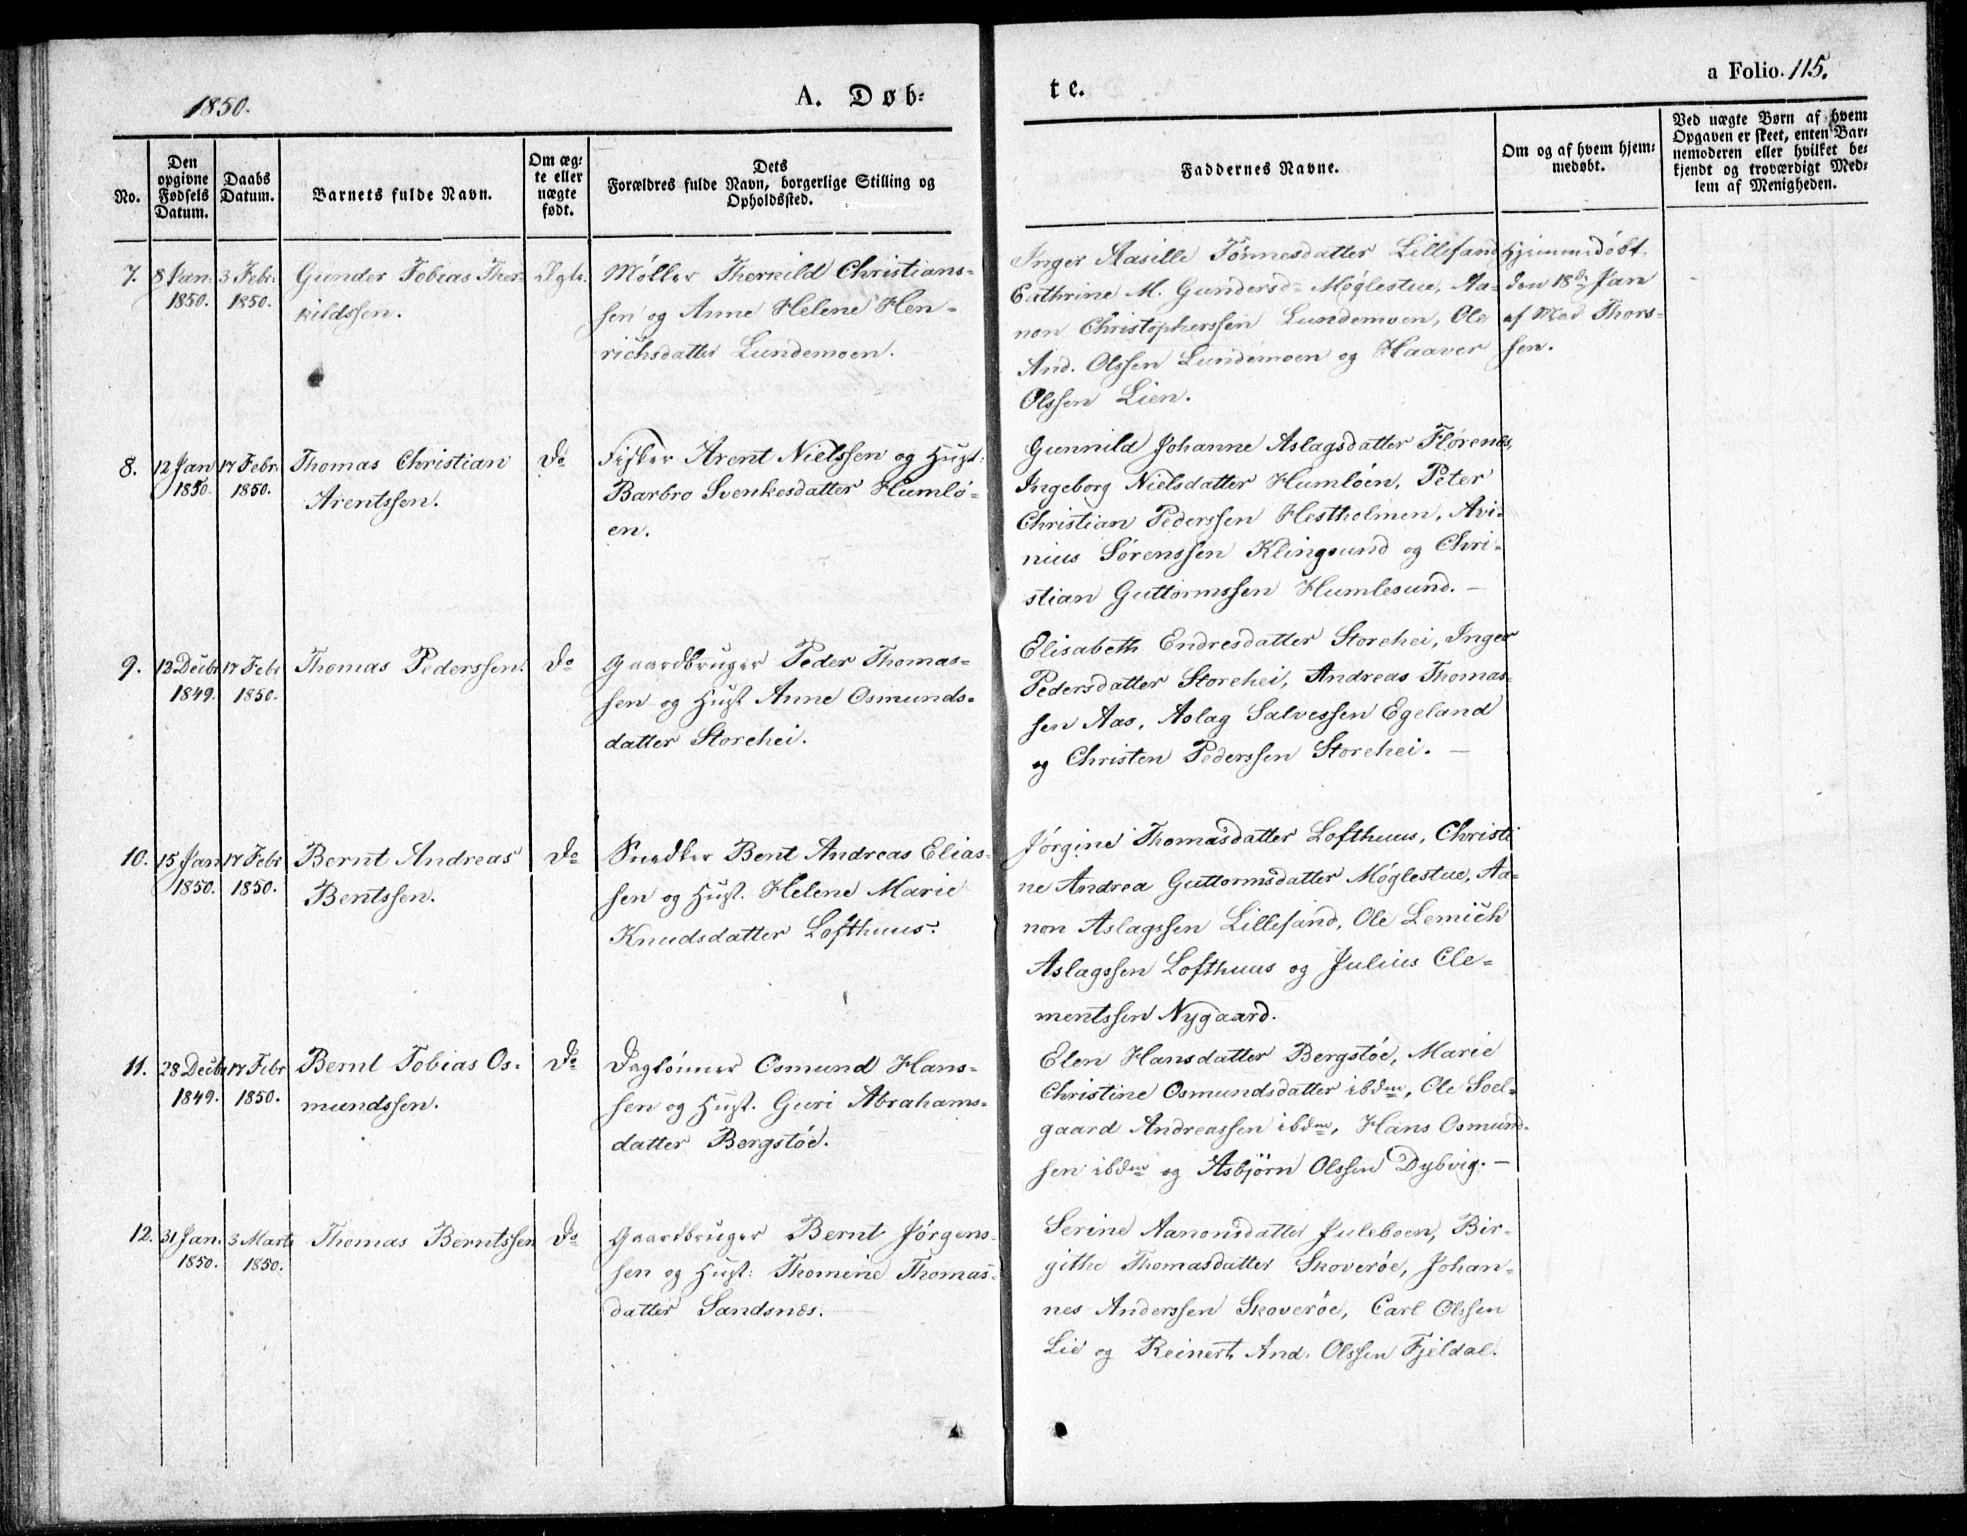 1850.
A. Døb-
te.
a Folio. 115.
No.
Den opgivne Fødsels Datum.
Daabs Datum.
Barnets fulde Navn.
Om æg-
te eller
uægte
født.
Dets
Forældres fulde Navn, borgerlige Stilling og
Opholdssted.
Faddernes Navne.
Om og af hvem hjem-
medøbt.
Ved uægte Børn af hvem
Opgaven er skeet, enten Bar-
nemoderen eller hvilket be-
kjendt og troværdigt Med-
lem af Menigheden.
7.
8 Jan.
1850.
3 Febr.
1850.
Gunder Tobias Ther-
kildssen.
Ægte.
Møller Therkild Christians-
sen og Anne Helene Hen-
richsdatter Lundemoen.
Inger Aasille Tönnesdatter Lillesand
Cathrine M. Gundersd- Møglestue, Aa-
non Christopherssen Lundemoen, Ole
And. Olssen Lundemoen og Haaver
Olssen Lien.
Hjemmedöbt
den 18de Jan
af Mad Thors-
sen.
8.
12 Jan
1850.
17 Febr.
1850.
Thomas Christian
Arentssen.
Do
Fisker Arent Nielssen og Hust:
Barbro Svenkesdatter Humlø-
en.
Gunnild Johanne Aslagsdatter Flørenes,
Ingeborg Nielsdatter Humlöen, Peter
Christian Pederssen Hestholmen, Avi-
nius Sørenssen Klingsund og Chri-
stian Guttormssen Humlesund. –
9.
12 Decbr
1849.
17 Febr
1850.
Thomas Pederssen.
Do
Gaardbruger Peder Thomas-
sen og Hust Anne Osmunds-
datter Storehei.
Elisabeth Endresdatter Storehei, Inger
Pedersdatter Storehei, Andreas Thomas-
sen Aas, Aslag Salvessen Egeland
og Christen Pederssen Storehei. –
10.
15 Jan
1850.
17 Febr
1850.
Bernt Andreas
Bentssen.
Do
Snedker Bent Andreas Elias-
sen og Hust. Helene Marie
Knudsdatter Lofthuus.
Jørgine Thomasdatter Lofthuus, Christi
ne Andrea Guttormsdatter Møglestue, Aa-
non Aslagssen Lillesand, Ole Lemich
Aslagssen Lofthuus og Julius Cle-
mentssen Nygaard.
11.
28 Decbr
1849.
17 Febr
1850.
Bernt Tobias Os-
mundssen.
Do
Daglönner Osmund Hans-
sen og Hust. Guri Abrahams-
datter Bergstöe.
Elen Hansdatter Bergstöe, Marie
Christine Osmundsdatter ibdm, Ole Soel-
gaard Andreassen ibdm, Hans Osmund-
sen ibdm og Asbjörn Olssen Dybvig. –
12.
31 Jan.
1850.
3 Marts
1850.
Thomas Berntssen
Do
Gaardbruger Bernt Jörgens-
sen og Hust: Thomine Thomas-
datter Sandsnes.
Serine Aanonsdatter Juleboen, Bir-
githe Thomasdatter Skoveröe, Johan-
nes Anderssen Skoveröe, Carl Olssen
Lie og Reinert And. Olssen Fjeldal.